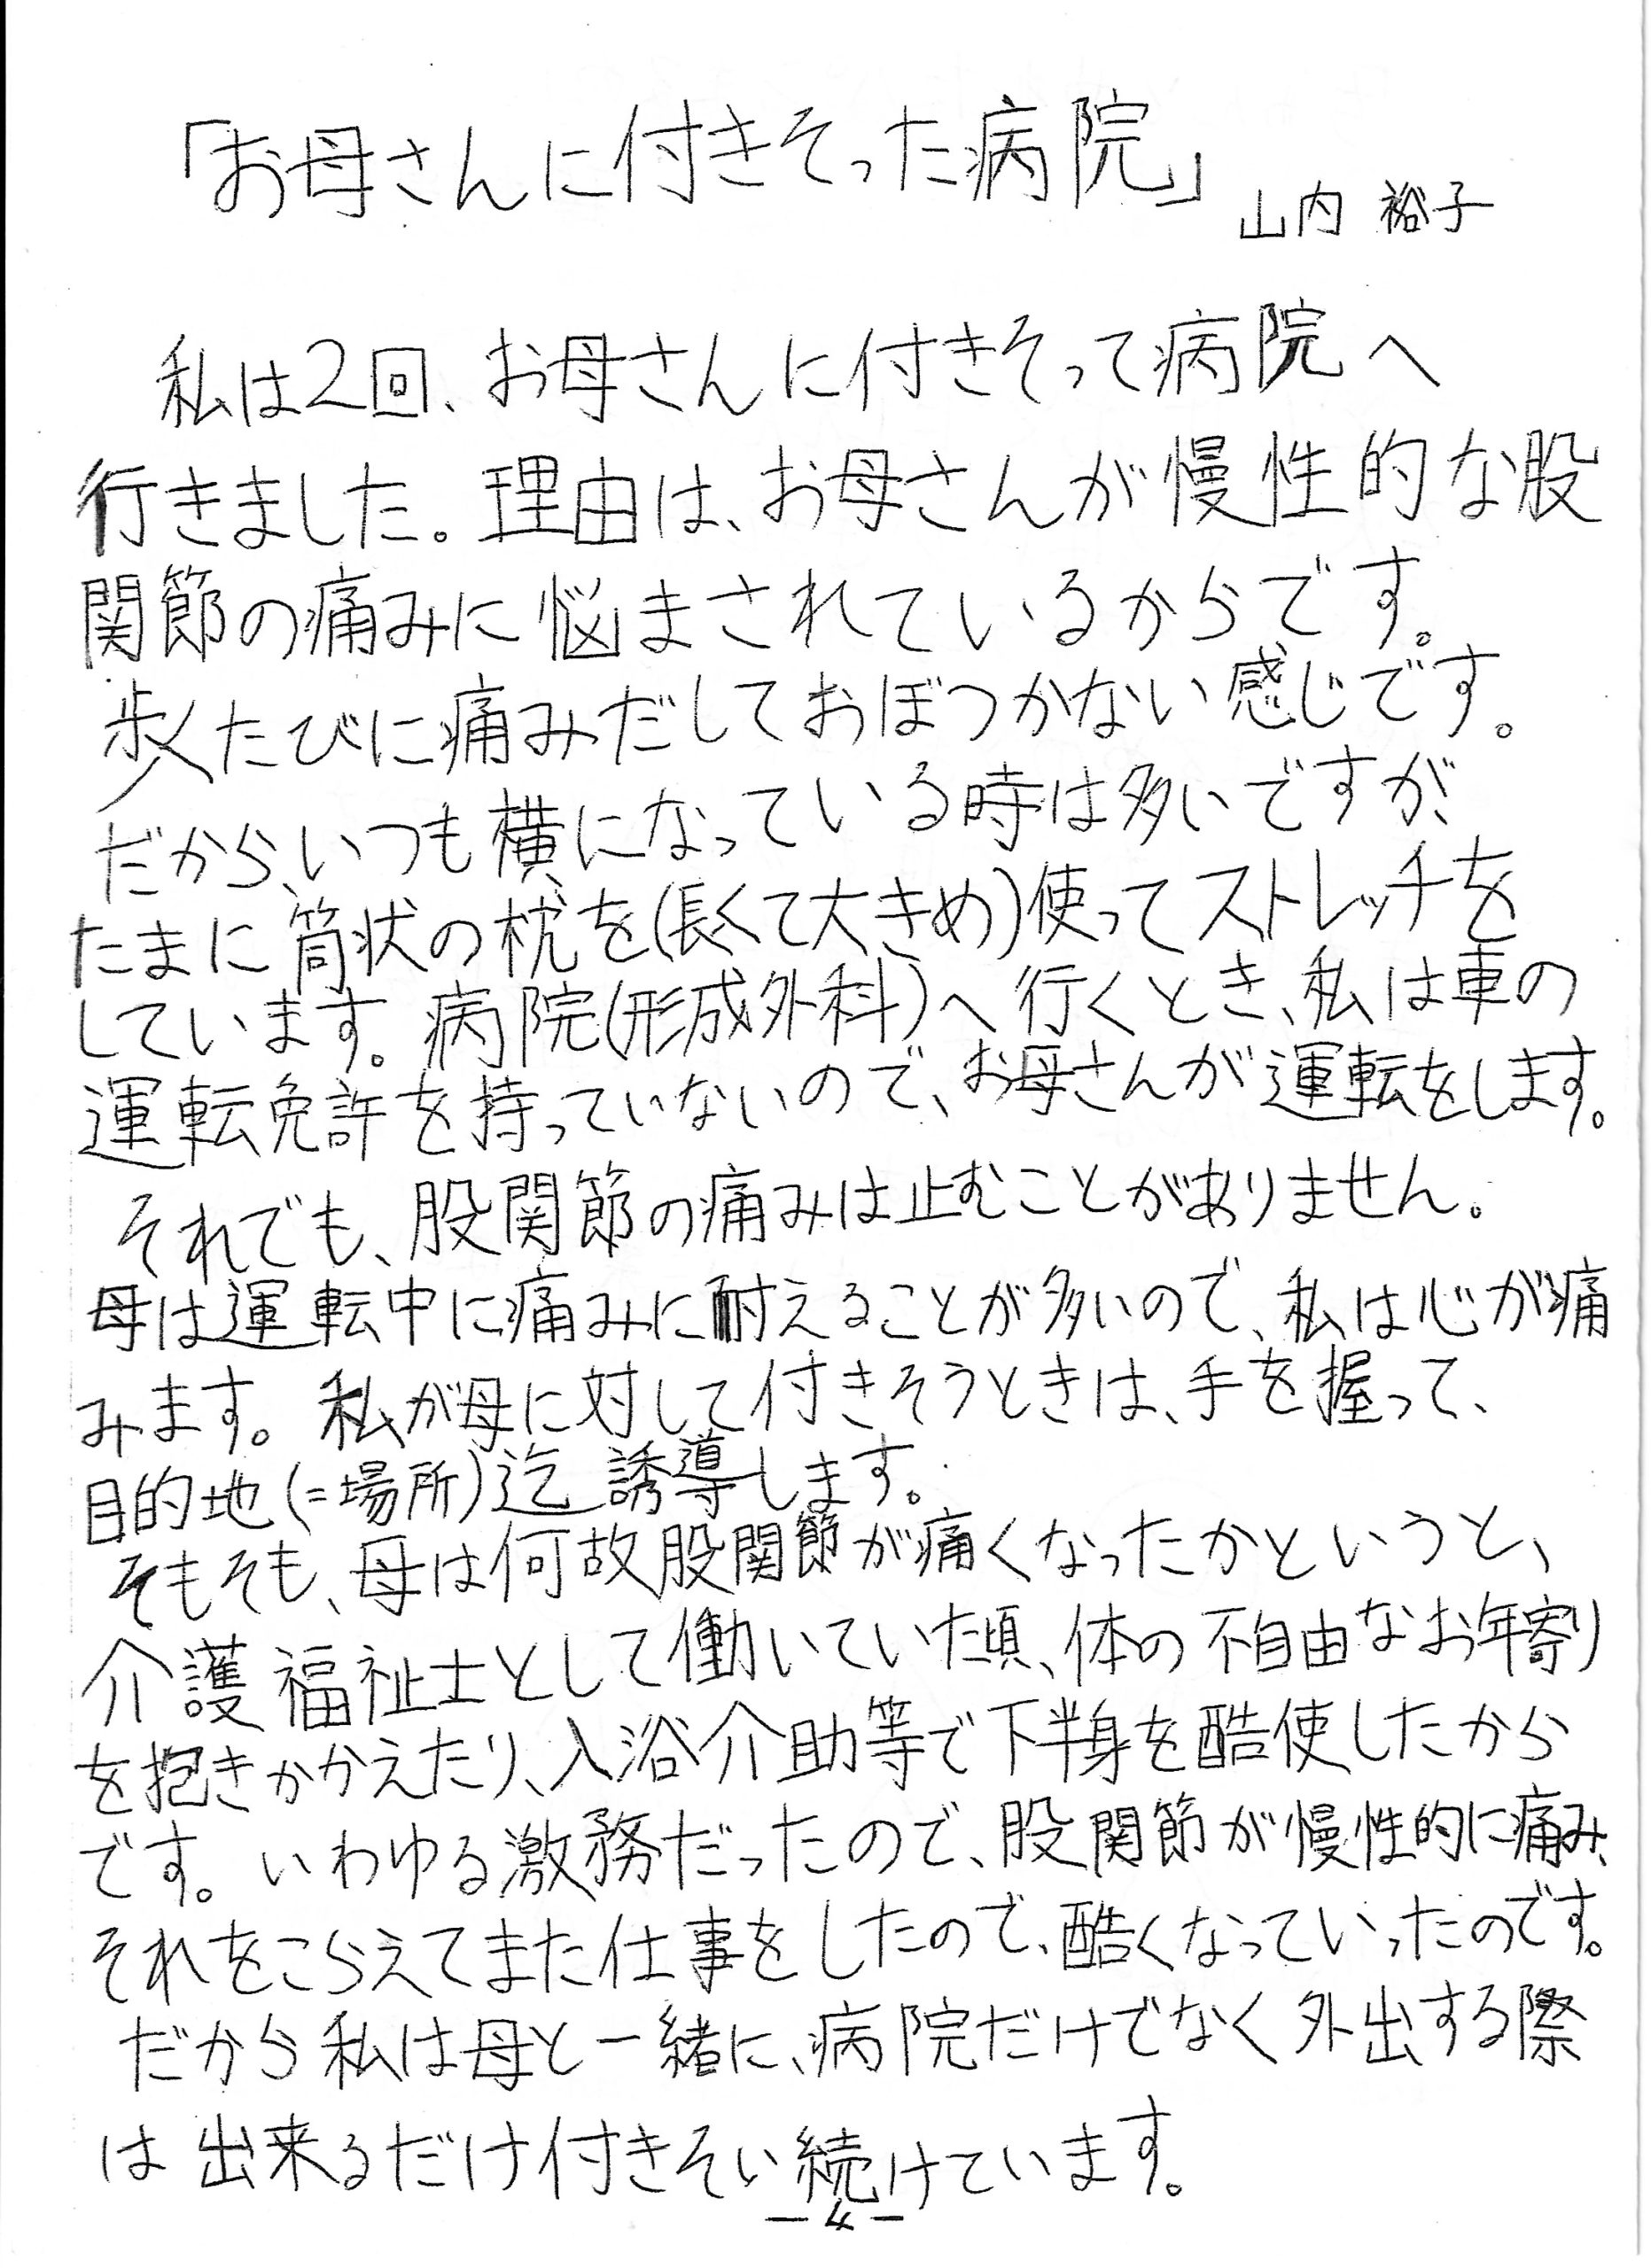 「お母さんに付きそった病院」
山内 裕子
私は2回、お母さんに付きそって病院へ
行きました。理由は、お母さんが慢性的な股
関節の痛みに悩まされているからです。
歩くたびに痛みだしておぼつかない感じです。
だから、いつも横になっている時は多いですが、
たまに筒状の枕を(長くて大きめ)使ってストレッチを
しています。病院(形成外科)へ行くとき、私は車の
運転免許を持っていないので、お母さんが運転をします。
それでも、股関節の痛みは止むことがありません。
母は運転中に痛みに耐えることが多いので、私は心が痛
みます。私が母に対して付きそうときは、手を握って、
目的地(=場所)迄誘導します。
そもそも、母は何故股関節が痛くなったかというと、
介護福祉士として働いていた頃、体の不自由なお年寄り
を抱きかかえたり、入浴介助等で下半身を酷使したから
です。いわゆる激務だったので、股関節が慢性的に痛み、
それをこらえてまた仕事をしたので、酷くなっていったのです。
だから私は母と一緒に、病院だけでなく外出する際
は出来るだけ付きそい続けています。
-4-